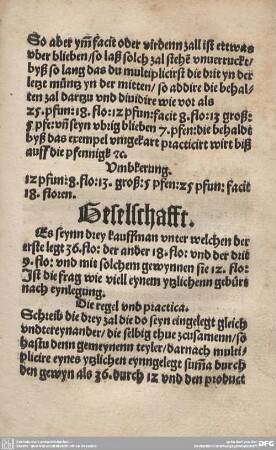 So aber ym facit oder virdenn zall ist ettwas
vber blieben/so laß solch zal stehē vnuerruckt/
byß so lang das du multiplicirst die drit yn der
letzt müntz yn der mitten/so addire die behal-
ten zal dartzu vnd diuidire wie vor als
25.pfun:18.flo:12 pfun:facit 8.flo:13 groß:
5 pfe:vñ seyn vbrig blieben 7.pfen:die behaldt
byß das exempel vmgekart practicirt wirt biß
auff die pfennigk ⁊c.
Vmbkerung.
12 pfun:8.flo:13.groß:5 pfen:25 pfun:facit
18.floren.
Geselschafft.
Es seynn drey kauffman vnter welchen der
erste legt 36.flo: der ander 18.flo: vnd der drit
9.flo: vnd mit solchem gewynnen sie 12.flo:
Ist die frag wie viel eynem ytzlichenn gebürt
nach eynlegung.
Die regel vnd practica.
Schreib die drey zal die do seyn eingelegt gleich
vndtereynander/die selbig thue zcusamenn/so
hastu denn gemeynenn teyler/darnach multi-
plicire eynes ytzlichen eynngelegte sum̃a durch
den gewyn als 36.durch 12 vnd den product